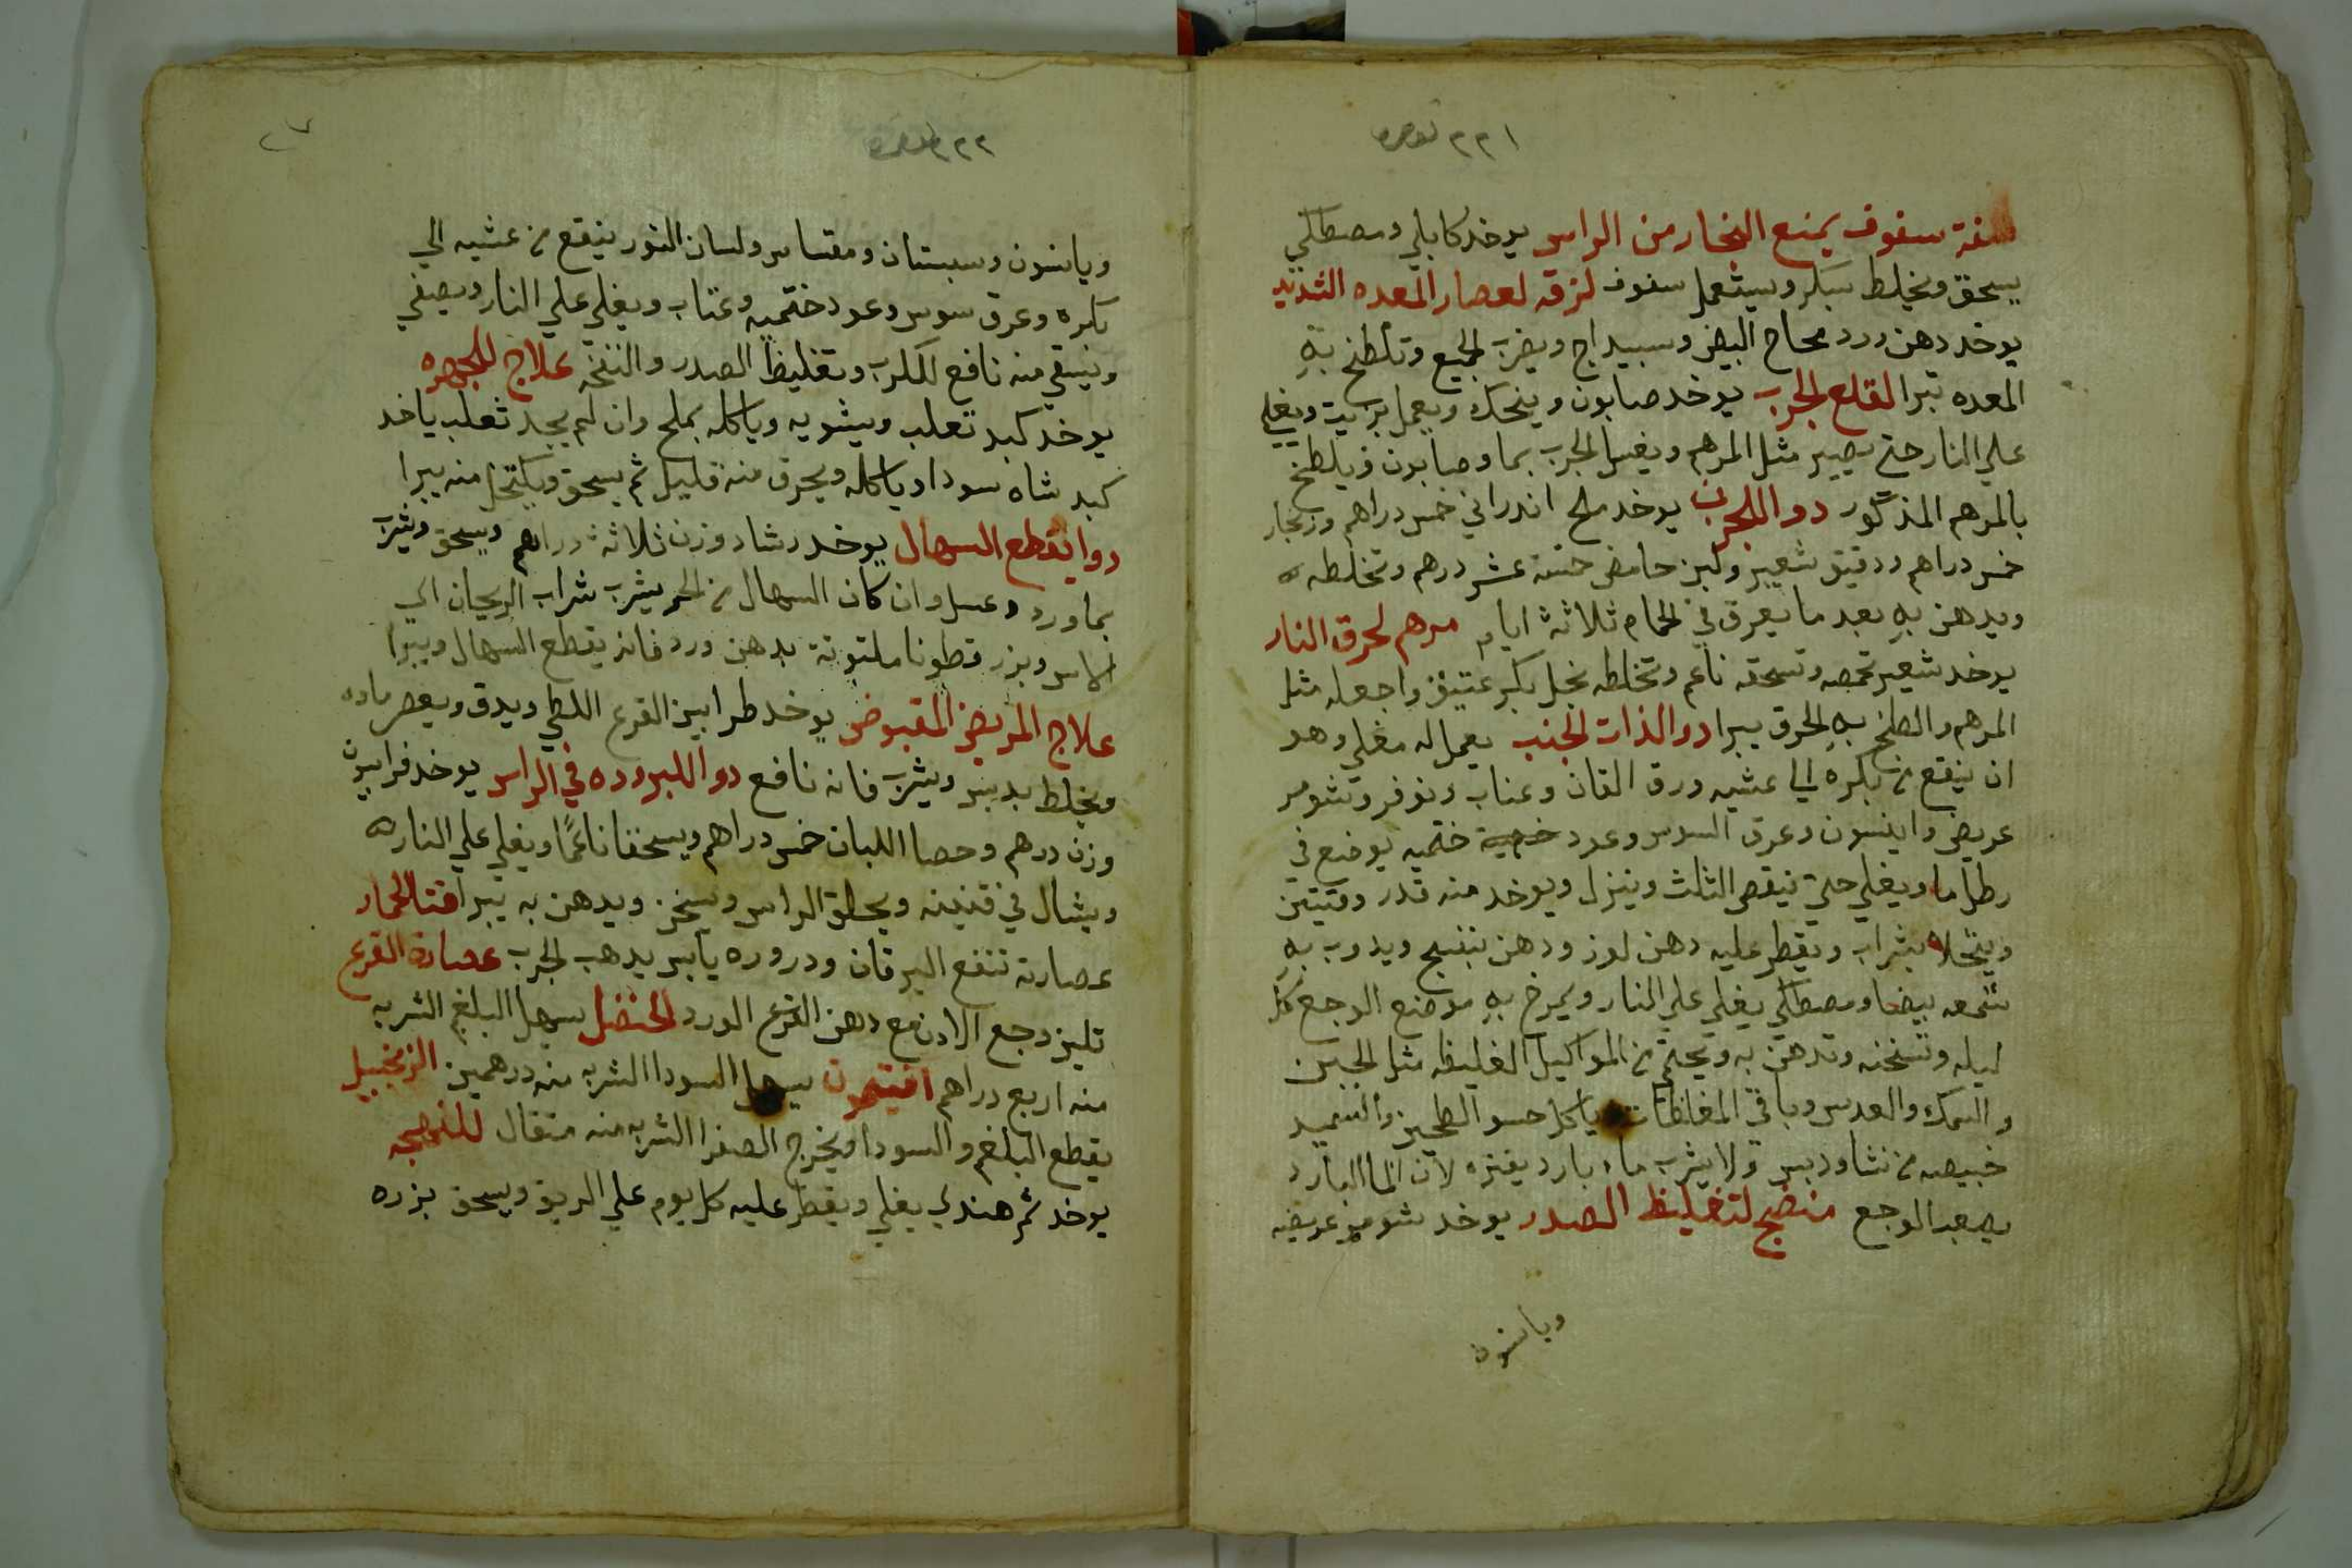 ٢٢١
صفة سفوف يمنع البخار من الراس يوخد كابلي ومصطكي
يسحق ويخلط بسكر ويستعمل سفوف لزقه لعصار المعده الشديد
يوخد دهن ورد محاح البيض وسبيداج ويضرب الجميع وتلطخ بهِ
المعده تبرا لقلع الجرب يوخد صابون وينحك ويعمل بزيت ويغلي
علي النار حتي يصير مثل المرهم ويغسل الجرب بما وصابون ويلطخ
بالمرهم المذكور دوا للجرب يوخد ملح اندراني خمس دراهم وزنجار
خمس دراهم ودقيق شعير ولبن حامض خمسة عشر درهم وتخلطه
ويدهن بهِ بعد ما يعرق في الحمام ثلاثة ايام مرهم لحرق النار
يوخد شعير تحمصه وتسحقه ناعم وتخلطه بخل بكر عتيق واجعله مثل
المرهم والطخ بهِ الحرق يبرا دوا لذات الجنب يعمل له مغلي وهو
ان ينقع من بكره الي عشيه ورق القان وعناب ونوفر وتشومر
عريض واينسون وعرق السوس وعود ختميه يوضع في
رطل ما ويغلي حتي ينقص الثلث وينزل ويوخد منه قدر وقيتين
ويتحلا بشراب ويقطر عليه دهن لوز ودهن بنفسج ويدوب بهِ
شمعه بيضا ومصطكي يغلي علي النار ويمرخ بهِ موضع الوجع كل
ليله وتسخنه وتدهن به وتحتمي من المواكيل الغليظه مثل الجبن
والسمك والعدس وباقي المغلظات ياكل حسو الطحين والسميد
خبيصه من نشا ودبس ولا يشرب ماء بارد يفتره لان الما البارد
يصعب الوجع منضج لتغليظ الصدر يوخد شومر عريضه
ويانسون
٢٢٢
ويانسون وسبستان ومقتاس ولسان الثور ينقع من عشيه الي
بكره وعرق سوس وعود ختميه وعناب ويغلي علي النار ويصفي
ويسقي منه نافع للكرب وتغليظ الصدر والنفخه علاج للجهره
يوخد كبد تعلب ويشويه وياكله بملح وان لم يجد ثعلب ياخد
كبد شاه سودا وياكله ويحرق منه قليل ثم يسحق ويكتحل منه يبرا
دوا يقطع السهال يوخد رشاد وزن ثلاثة دراهم ويسحق ويشرب
بماورد وعسل وان كان السهال من الحر يشرب شراب الريحان الي
الاس وبزر قطونا ملتوتة بدهن ورد فانه يقطع السهال ويبرا
علاج المريض المقبوض يوخد طرابين القرع اللطي ويدق ويعصر ماوه
ويخلط بدبس ويشرب فانه نافع دوا للبروده في الراس يوخد فرابيون
وزن درهم وحصا اللبان خمس دراهم ويسحقا ناعمًا ويغلي علي النار
ويشال في قنينه ويحلق الراس ويسخن ويدهن به يبرا قتا الحمار
عصارته تنفع اليرقان ودروره يابس يدهب الجرب عصارة القرع
تلين وجع الادن مع دهن القرع الورد الحنضل يسهل البلغم الشربه
منه اربع دراهم افتيمون يسهل السودا الشربه منه درهمين الزنجبيل
يقطع البلغم والسودا ويخرج الصفرا الشربه منه متقال
يوخد تمر هندي يغلي ويقطر عليه كل يوم علي الريق ويسحق بزره